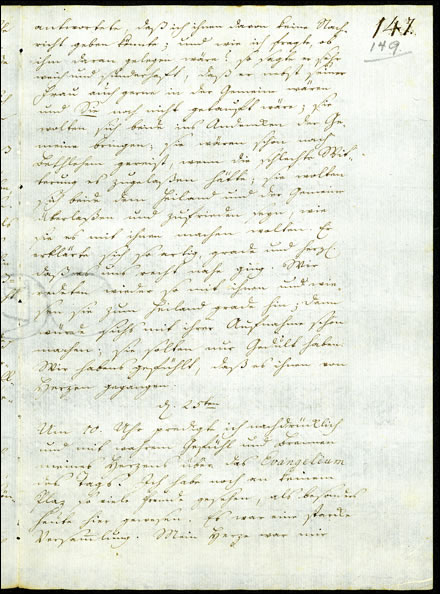 147.
149
antwortete, daß ich ihnen davon keine Nach-
richt geben könnte; und wie ich fragte, ob
ihm daran gelegen wäre? so sagte er sehr
und sünderhaft, daß er nebst seiner
Frau auch gerne in der Gemein wären,
und Sie noch nicht getauft wäre; sie
wolten sich beide ins Andenken der Ge-
meine bringen; sie wären schon nach
Bethlehem gereißt, wenn die schlechte Wit-
terung es zugelaßen hätte; sie wolten
sich beide dem Heiland und der Gemeine
überlaßen und zufrieden seyn, wie
sie es mit ihnen machen wolten. Er
erklärte sich so artig, grade und herzl.
daß es uns recht nahe ging. Wir
redeten wieder so mit ihnen und wie-
sen sie zum Heiland grade hin; dem
würde sichs mit ihrer Aufnahme schon
machen; sie solten nur Gedult haben.
Wir habens gefühlt, daß es ihnen von
Herzen gegangen.
d. 25ten
Um 10. Uhr predigte ich nachdrücklich
und mit wahrem Gefühl und
meines Herzens über das Evangelium
des Tags. Ich habe noch an keinem
Plaz so viele Freunde gesehen, als besonders
heute hier gewesen. Es war eine starke
Versammlung. Mein Herze war mir